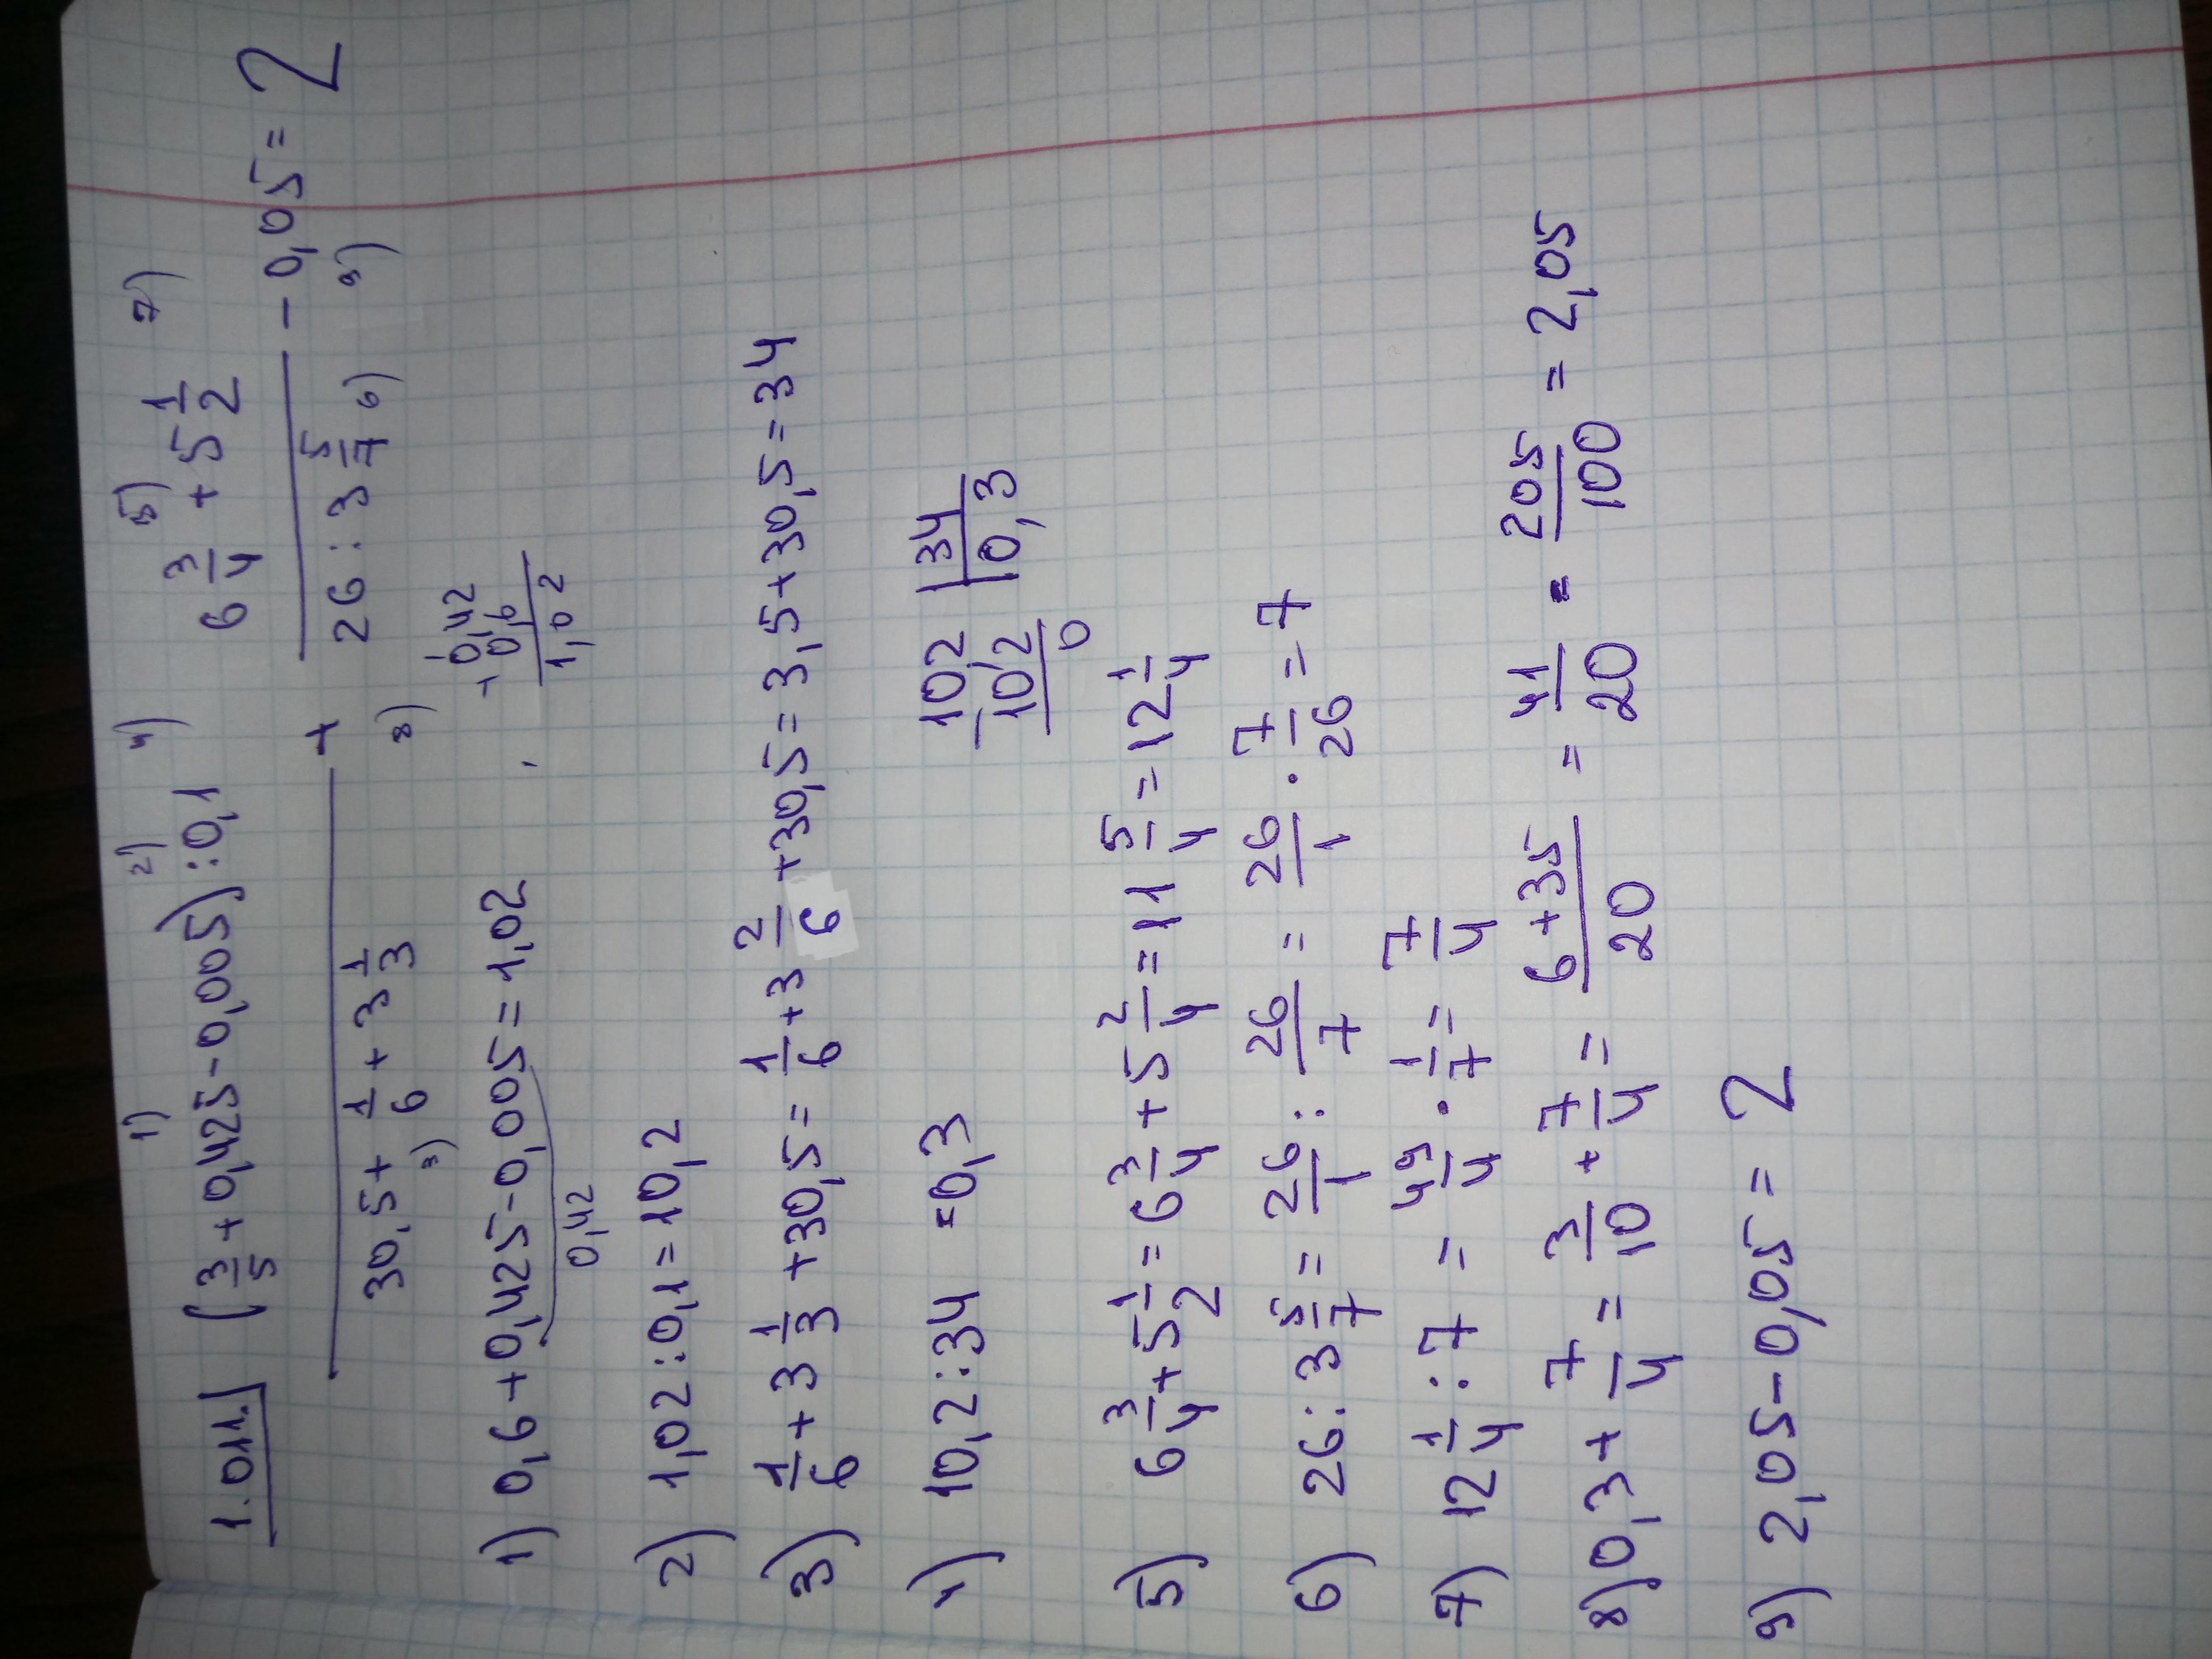 1.011. (3/5 + 0,425 - 0,005) : 0,1 / 30,5 + 1/6 + 3 1/3 + 6 3/4 + 5 1/2 / 26 : 3 5/7 - 0,05 = 2
1) 2) 4) 5) 7)
3) 8) 6) 9)
1) 0,6 + 0,425 - 0,005 = 1,02
0,42
+ 0,42
0,6
1,02
2) 1,02 : 0,1 = 10,2
3) 1/6 + 3 1/3 + 30,5 = 1/6 + 3 2/6 + 30,5 = 3,5 + 30,5 = 34
4) 10,2 : 34 = 0,3
102 | 34
102 | 0,3
0
5) 6 3/4 + 5 1/2 = 6 3/4 + 5 2/4 = 11 5/4 = 12 1/4
6) 26 : 3 5/7 = 26/1 : 26/7 = 26/1 · 7/26 = 7
7) 12 1/4 : 7 = 49/4 · 1/7 = 7/4
8) 0,3 + 7/4 = 3/10 + 7/4 = 6 + 35/20 = 41/20 = 205/100 = 2,05
9) 2,05 - 0,05 = 2